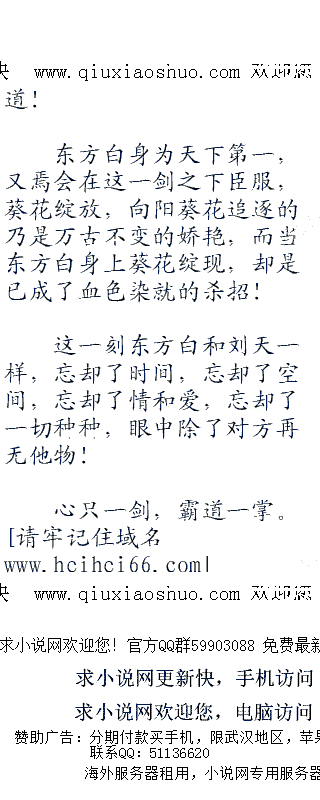 快  www.qiuxiaoshuo.com 欢迎您
道！
东方白身为天下第一，
又焉会在这一剑之下臣服，
葵花绽放，向阳葵花追逐的
乃是万古不变的娇艳，而当
东方白身上葵花绽现，却是
已成了血色染就的杀招！
这一刻东方白和刘天一
样，忘却了时间，忘却了空
间，忘却了情和爱，忘却了
一切种种，眼中除了对方再
无他物！
心只一剑，霸道一掌。
[请牢记住域名
www.hcihci66.com|
快  www.qiuxiaoshuo.com 欢迎您
求小说网欢迎您！官方QQ群59903088 免费最新
求小说网更新快，手机访问
求小说网欢迎您，电脑访问
赞助广告：分期付款买手机，限武汉地区，苹果
联系QQ：51136620
海外服务器租用，小说网专用服务器